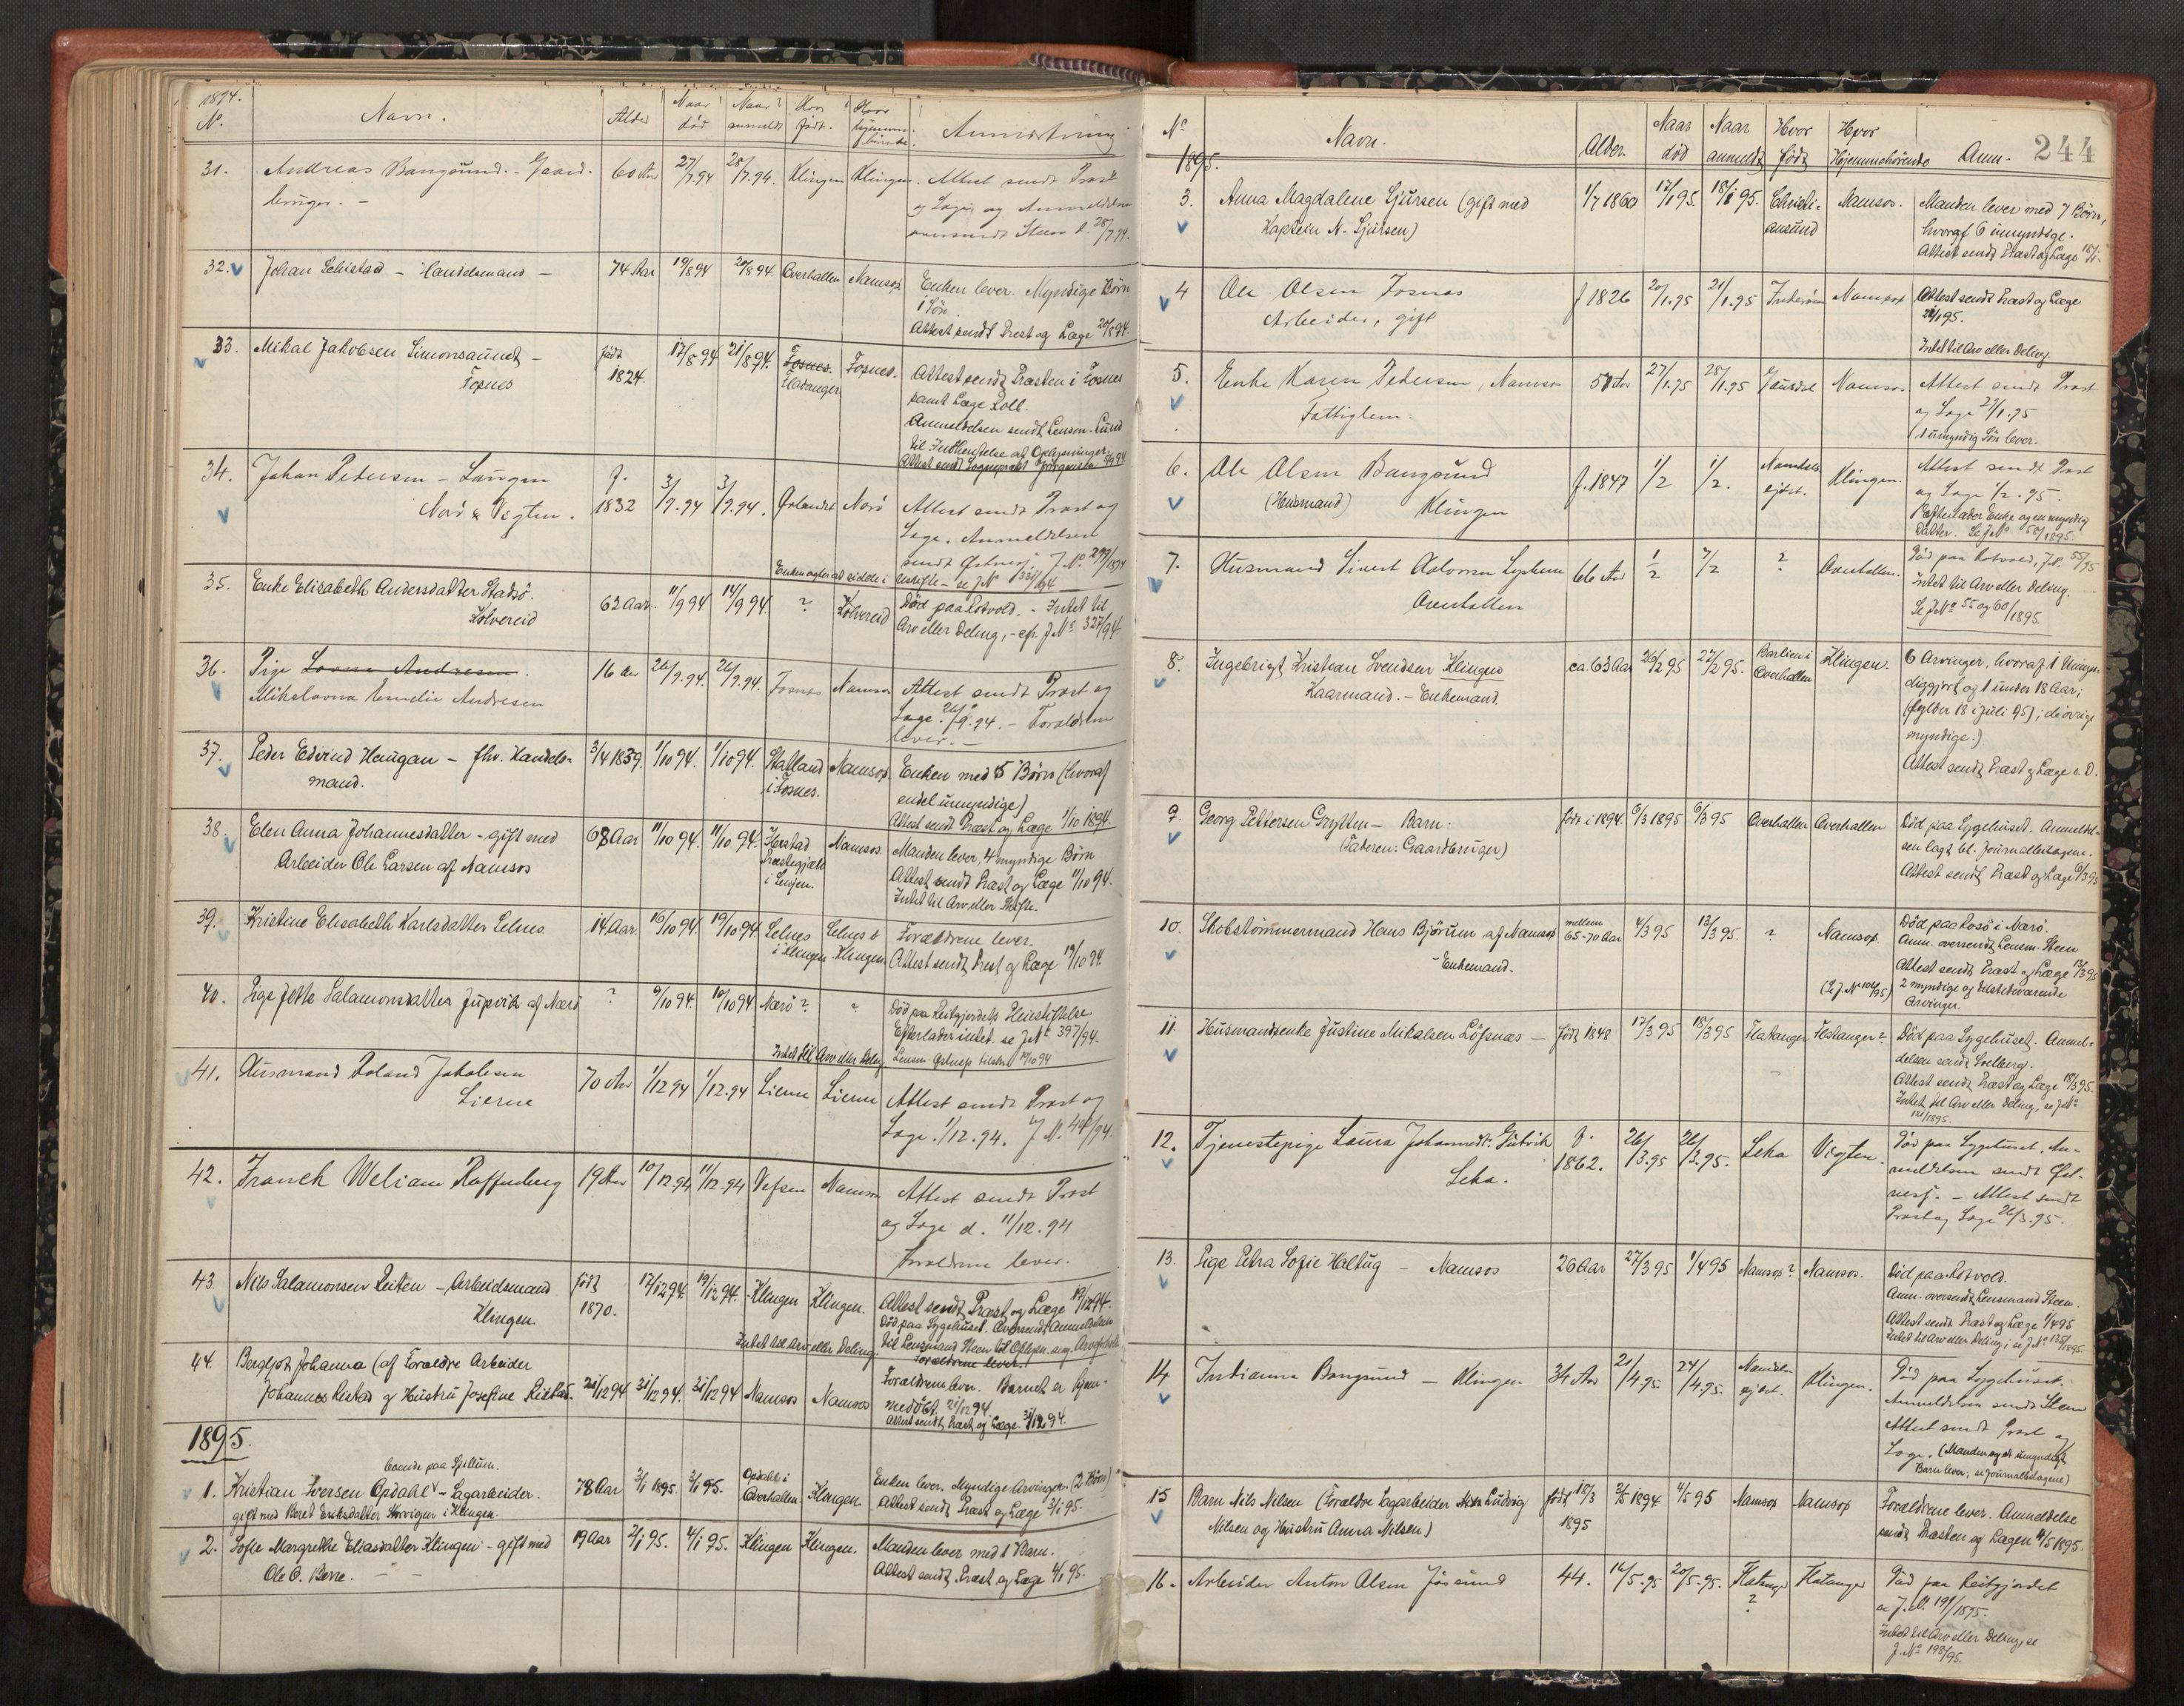 1894.
No.
Navn.
Alder
Naar død
Naar anmeldt
Hvor født.
Hvor hjemmehørende.
Anmærkning
31. Andreas Bangsund. - Gaard- 60 Aar 27/7.94 28/7.94. Klingen Klingen. Attest sendt Præst
bruger. -
og Læge og Anmeldelsen
oversendt Steen d. 28/7.94.
32. Johan Sehistad - Handelsmand - 74 Aar 19/8 94 20/8 94. Overhallen Namsos Enken lever. Myndige Børn
Attest sendt Præst og Læge 20/8 94.
33. Mikal Jakobsen Simonsaunet - født 17/8 94 21/8 94. Fosnes. Fosnes. Attest sendt Præsten i Fosnes
Fosnes 1824. Flatanger
samt Læge Roll.
Anmeldelsen sendt Lensm. Lund
til Indhentelse af Oplysninger.
34. Johan Pedersen - Laugen f. 1832 3/9.94 3/9.94. Ørlandet Nærø Attest sendt Præst og
Nærø & Vigten.
Læge. Anmeldelsen
sendt Østnes J. No 299/1894
35. Enke Elisabeth Andersdatter Stadsø. 62 Aar. 11/9 94 14/9 94. ? Kolvereid Død paa Rotvold. - Intet til
Kolvereid
Arv eller Deling, - cfr. J No 327/94.
36. Pige Lovna Andresen. 16 Aar 26/9.94. 26/9.94. Fosnes Namsos Attest sendt Præst og
Mikalovna Emelie Andresen
Læge. 26/9.94. - Forældrene
lever. -
37. Peder Edvind Haugan - fhv. Handels- 3/4 1839. 1/10 94. 1/10 94. Statland Namsos. Enken med 5 Børn (hvoraf
mand. i Fosnes.
endel umyndige)
Attest sendt Præst og Læge 1/10 1894.
38. Elen Anna Johannesdatter - gift med 68 Aar 11/10 94. 11/10 94. Harstad Namsos. Manden lever, 4 myndige Børn
Arbeider Ole Larsen af Namsos Præstegjæld
i Senjen.
Attest sendt Præst og Læge 11/10 94.
Intet til Arv eller Skifte.
39. Kristine Elisabeth Karlsdatter Selnes 14 Aar. 16/10 94 19/10 94. Selnes Selnes i Forældrene lever.
i Klingen Klingen Attest sendt Præst og Læge 19/10 94.
40. Pige Jette Salamonsdatter Jupvik af Nærø ? 9/10 94. 10/10 94 Nærø? ? Død paa Reitgjerdets Pleiestiftelse.
Efterlader intet. se J No 397/94.
Intet til Arv eller Deling
41. Husmand Roland Jakobsen 70 Aar 1/12 94 1/12.94 Lierne Lierne Attest sendt Præst og
Lierne
Læge. 1/12.94. J No
42. Franck Weliam Raffenberg 19 Aar 10/12.94 11/12.94 Vefsen Namsos Attest sendt Præst
og Læge d. 11/12.94
Forældrene lever.
43. Nils Salamonsen Reiten - Arbeidsmand født 17/12 94. 19/12 94. Klingen Klingen. Attest sendt Præst og Læge 19/12 94.
Klingen 1870.
Død paa Sygehuset. Oversendt Anmeldelsen
Intet til Arv eller Deling.
Forældrene lever.
44. Bergljot Johanna (af Forældre Arbeider
Johannes Ristad og Hustru Josefine Ristad. 21/12 94 31/12 94. 31/12 94 Namsos Namsos Forældrene lever. Barnet er hjem-
medøbt. 21/12 94.
Attest sendt Præst og Læge 31/12 94.
1895.
boende paa Spillum.
1. Kristian Iversen Opdahl - Sagarbeider. 78 Aar 2/1 1895. 3/1 95. Opdahl i Overhallen Klingen. Enken lever. Myndige Arvinger (2 Børn)
gift med Beret Eriksdatter Storvigen i Klingen
Attest sendt Præst og Læge 3/1 95.
2. Sofie Margrethe Eliasdatter Klingen - gift med 19 Aar 2/1 95. 4/1 95. Klingen Klingen. Manden lever med 1 Barn.
Ole O. Berre.
Attest sendt Præst og Læge 4/1 95.
244
No
1895.
Navn.
Alder.
Naar død
Naar anmeldt
Hvor født
Hvor Hjemmehørende
Anm.
3. Anna Magdalene Sjursen (gift med 1/7 1860 17/1 95. 18/1 95. Christi- Namsos. Manden lever med 7 Børn,
Kaptein N. Sjursen) ansund
hvoraf 6 umyndige.
Attest sendt Præst og Læge 18/1.
4 Ole Olsen Fosnes f 1826 20/1.95 21/1.95 Inderøen Namsos Attest sendt Præst og Læge
Arbeider, gift
21/1 95.
Intet til Arv eller Deling.
5. Enke Karen Pedersen, Namsos 27/1.95 28/1.95 Namsos. Attest sendt Præst
Fattiglem.
og Læge
1 umyndig Søn lever.
6. Ole Olsen Bangsund f. 1847 1/2 1/2. Namdals- Klingen. Attest sendt Præst
(Husmand) Klingen eidet.
og Læge 1/2.95.
Efterlader Enke og en myndig
Datter. Se J No 58/1895.
7. Husmand Sivert 66 Aar 1/2 7/2 ? Overhallen. Død paa Rotvold, J. No 55/95
Overhallen
Intet til Arv eller Deling.
Se J No 55 og 60/1895
8. Ingebrigt Kristian Svendsen Klingen ca. 63 Aar 26/2 95 27/2 95. Barlien i Overhallen Klingen. 6 Arvinger, hvoraf 1 Umyn-
Kaarmand. - Enkemand.
diggjort og 1 under 18 Aar;
(fylder 18 i Juli 95); de øvrige
myndige.)
Attest sendt Præst og Læge s. D.
9. Georg Pettersen Grytten - Barn. født i 1894. 6/3 1895 6/3 95 Overhallen Overhallen Død paa Sygehuset. Anmeldel-
(Faderen: Gaardbruger)
sen lagt bl. Journalbilagene.
Attest sendt Præst og Læge 6/3 95
10. Skibstømmermand Hans Bjørum af Namsos mellem 65-70 Aar 4/3 95 13/3 95. ? Namsos. Død paa Rosø i Nærø.
- Enkemand.
Anm. oversendt Lensm. Steen
Attest sendt Præst og Læge 13/3 95
2 myndige og tilstedeværende
Arvinger.
11. Husmandsenke Justine Mikalsen Løfsnæs - født 1848 17/3 95 18/3 95 Flatanger Flatanger? Død paa Sygehuset. Anmel-
delsen sendt Solberg.
Attest sendt Præst og Læge 18/3 95.
Intet til Arv eller Deling, se J No
12. Tjenestepige Laura Johannesdt. Gutvik f. 1862. 26/3.95 26/3.95. Leka Vigten. Død paa Sygehuset. An-
Leka.
meldelsen sendt Øst-
nesj. - Attest sendt
Præst og Læge 26/3.95.
13. Pige Petra Sofie Haltug - Namsos 26 Aar 27/3 95 1/4 95 Namsos? Namsos. Død paa Rotvold.
Anm. oversendt Lensmand Steen.
Attest sendt Præst og Læge 1/4 95
Intet til Arv eller Deling, se J No 135/1895
14 Bangsund - Klingen 34 Aar 21/4.95. 24/4.95. Namdals- eidet. Klingen. Død paa Sygehuset.
Anmeldelsen sendt Steen
Attest sendt Præst og
Læge. (Manden og et umyndigt
Barn lever, se Journalbilagene)
15 Barn Nils Nilsen (Forældre Sagarbeider Ludvig født 18/3 1895 3/5 1894 4/5 95 Namsos Namsos Forældrene lever. Anmeldelse
Nilsen og Hustru Anna Nilsen)
sendt Præsten og Lægen 4/5 1895.
16. Arbeider Anton Olsen Jøssund 44. 16/5.95 20/5.95. Flatanger ? Flatanger Død paa Reitgjerdet
se J. No. 191/1895.
Intet til Arv eller Deling, se
J. No 198/95.